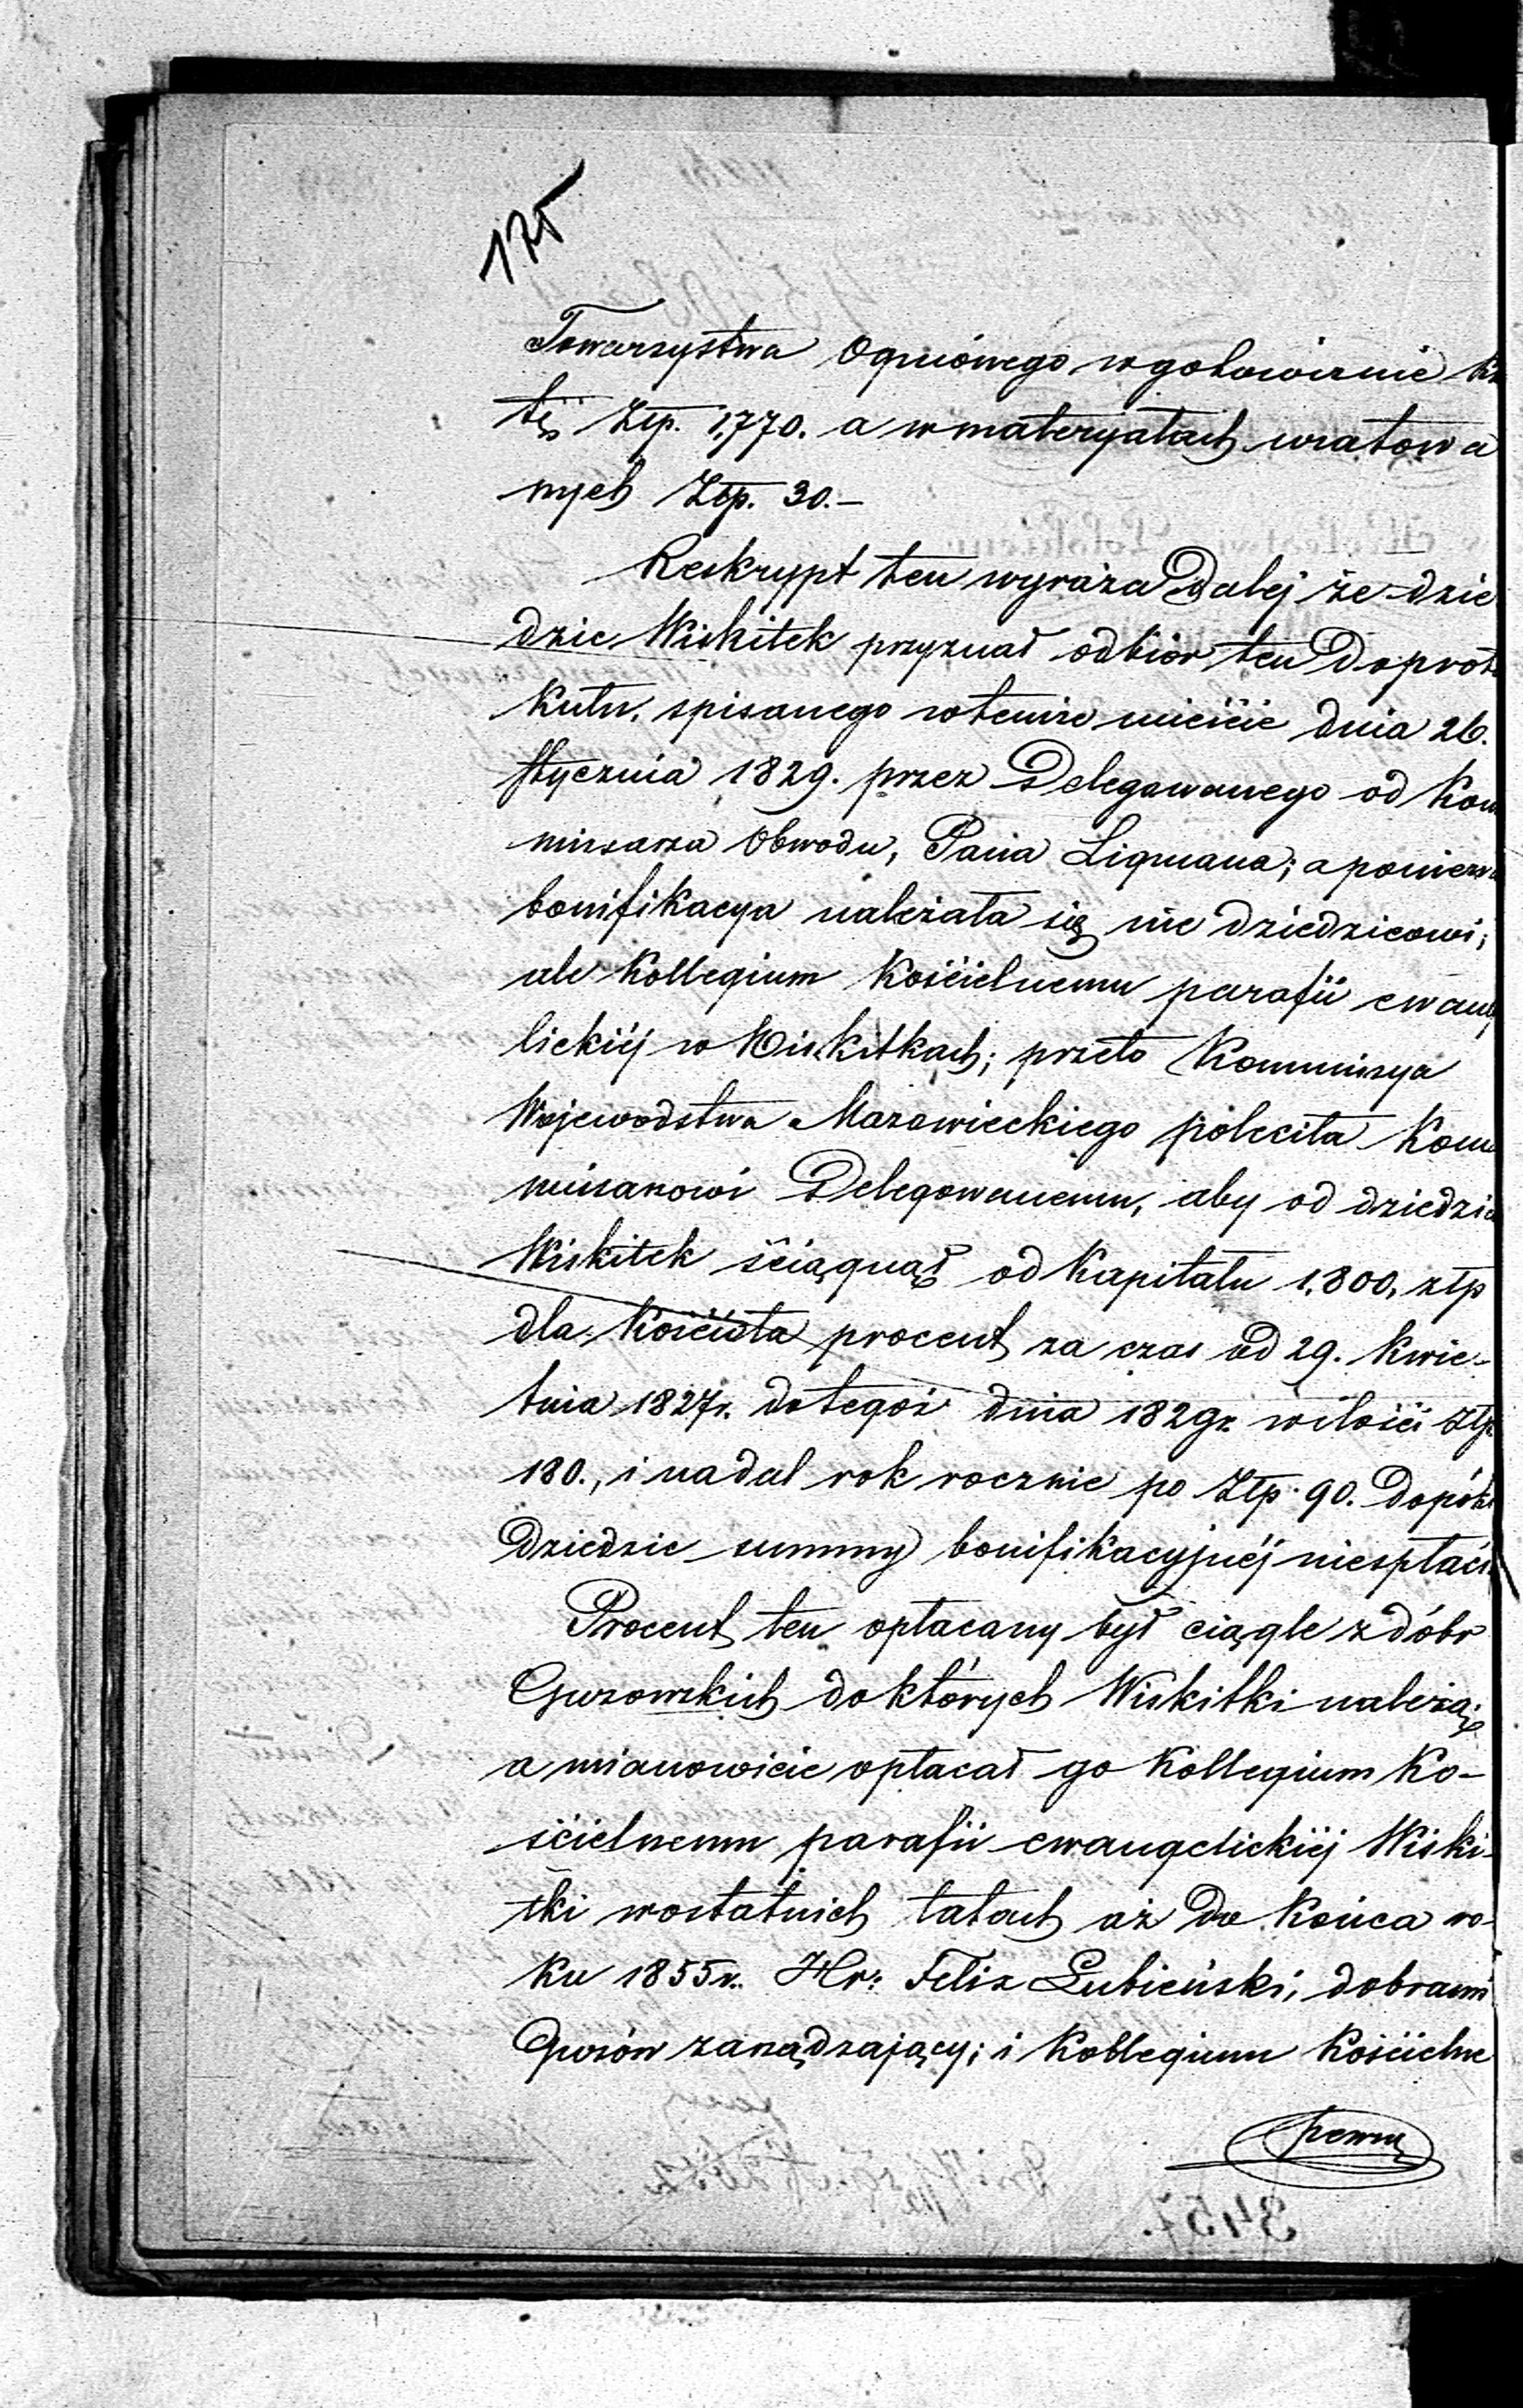 175
Towarzystwa Ogniowego w gotowiznie
tę Złp. 1,770. a w materyałach uratowa
nych Złp. 30.–
Reskrypt ten wyraża dalej że dzie
dzic Wiskitek przyznał odbiór ten do proto
kułu, spisanego w temże mieście dnia 26.
Stycznia 1829. przez Delegowanego od Kom
missarza Obwodu, Pana Ligmana; a ponieważ
bonifikacya należała się nie dziedzicowi;
ale Kollegium Kościelnemu parafii ewang
lickiéj w Wiskitkach; przeto Kommissya
Wojewodstwa Mazowieckiego poleciła Kom
missarzowi Delegowanemu, aby od dziedzica
Wiskitek ściągnął od Kapitału 1,800, złp
dla Kościoła procent za czas od 29. Kwie-
tnia 1827r. do tegoż dnia 1829r. w ilości złp
180., i nadal rok rocznie po Złp. 90. dopóki
Dziedzic summy bonifikacyjnéj niespłaci.
Procent ten opłacany był ciągle z dóbr
Guzowskich do których Wiskitki należą;
a mianowicie opłacał go Kollegium Ko-
ścielnemu parafii ewangelickiéj Wiski-
tki w ostatnich latach aż do końca ro-
ku 1855r. Hr: Felix Łubieński, dobrami
Guzów zarządzający; i Kollegium Kościelne
pewny
3457.